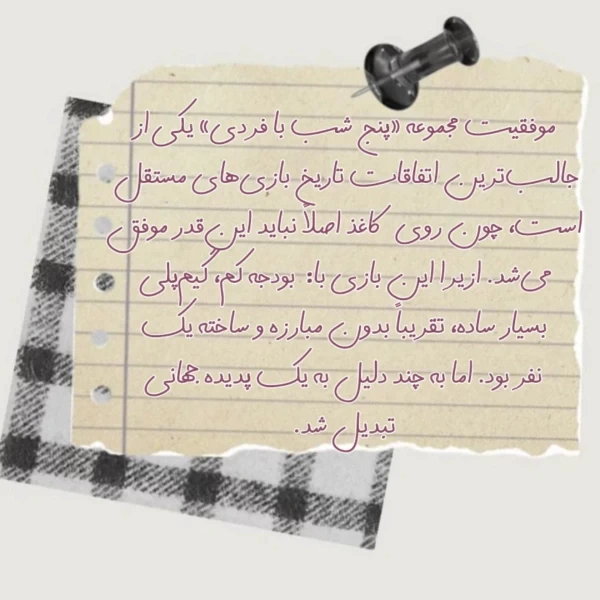 موفقیت مجموعه «پنج شب با فردی» یکی از
جالب‌ترین اتفاقات تاریخ بازی‌های مستقل
است، چون روی کاغذ اصلاً نباید این قدر موفق
می‌شد. ازیرا این بازی با: بودجه کم، گیم‌پلی
بسیار ساده، تقریباً بدون مبارزه و ساخته یک
نفر بود. اما به چند دلیل به یک پدیده جهانی
تبدیل شد.